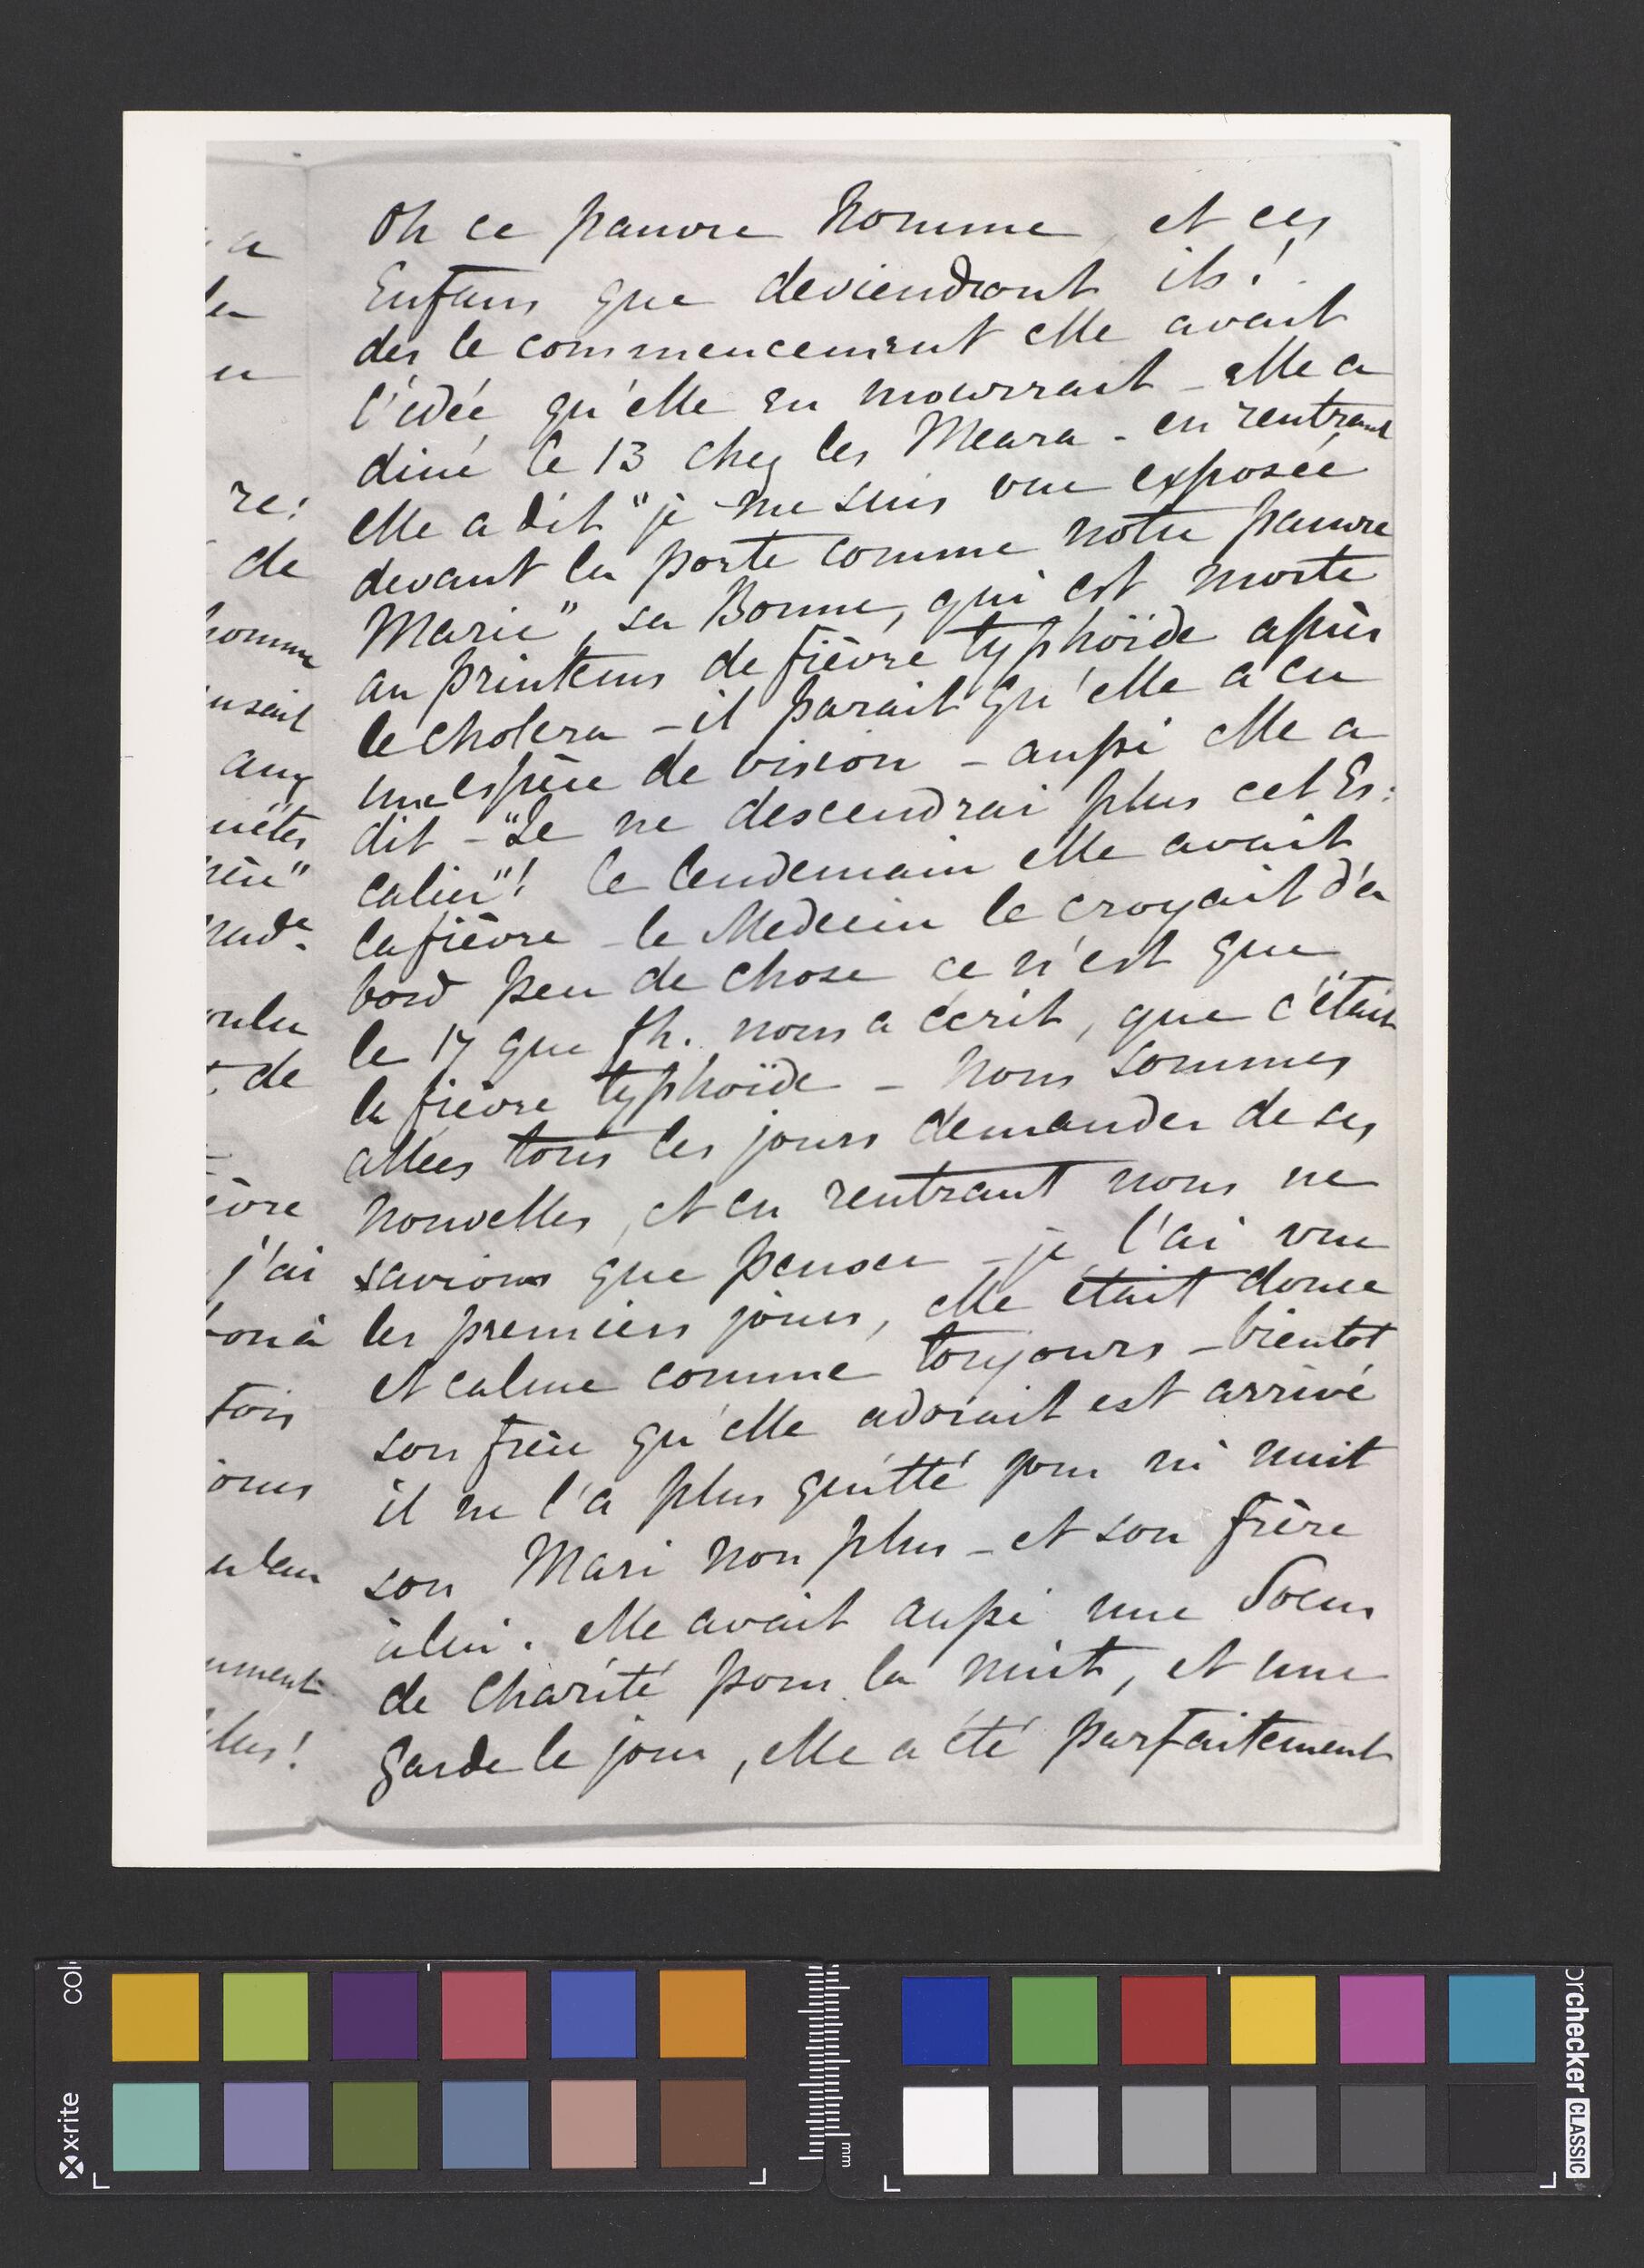 Oh ce pauvre homme, et ces
Enfans que deviendront ils!
des le commencement elle avait
l'idée qu'elle en mourrait - elle a
diné le 13 chez les Meara - en rentrant
elle a dit "je me suis vue exposée
devant la porte comme notre pauvre
Marie", sa Bonne, qui est morte
au printems de fièvre typhoïde après
le cholera - il parait qu'elle a eu
une espèce de vision - aussi elle a
dit - "Je ne descendrai plus cet Es:
calier"! le lendemain elle avait
la fièvre - le Medecin le croyait d'a
bord peu de chose ce n'est que
le 17 que th. nous a écrit, que c'était
la fièvre typhoïde - Nous sommes
allées tous les jours demander de ses
nouvelles, et en rentrant nous ne
savions que penser - je l'ai vue
les premiers jours, elle était douce
et calme comme toujours - bientot
son frère qu'elle adorait est arrivé
il ne l'a plus quitté jour ni nuit
son Mari non plus - et son frère
à lui. elle avait aussi une Soeur
de Charité pour la nuit, et une
garde le jour, elle a été parfaitement
re:
de
j'ai
fois
plus!